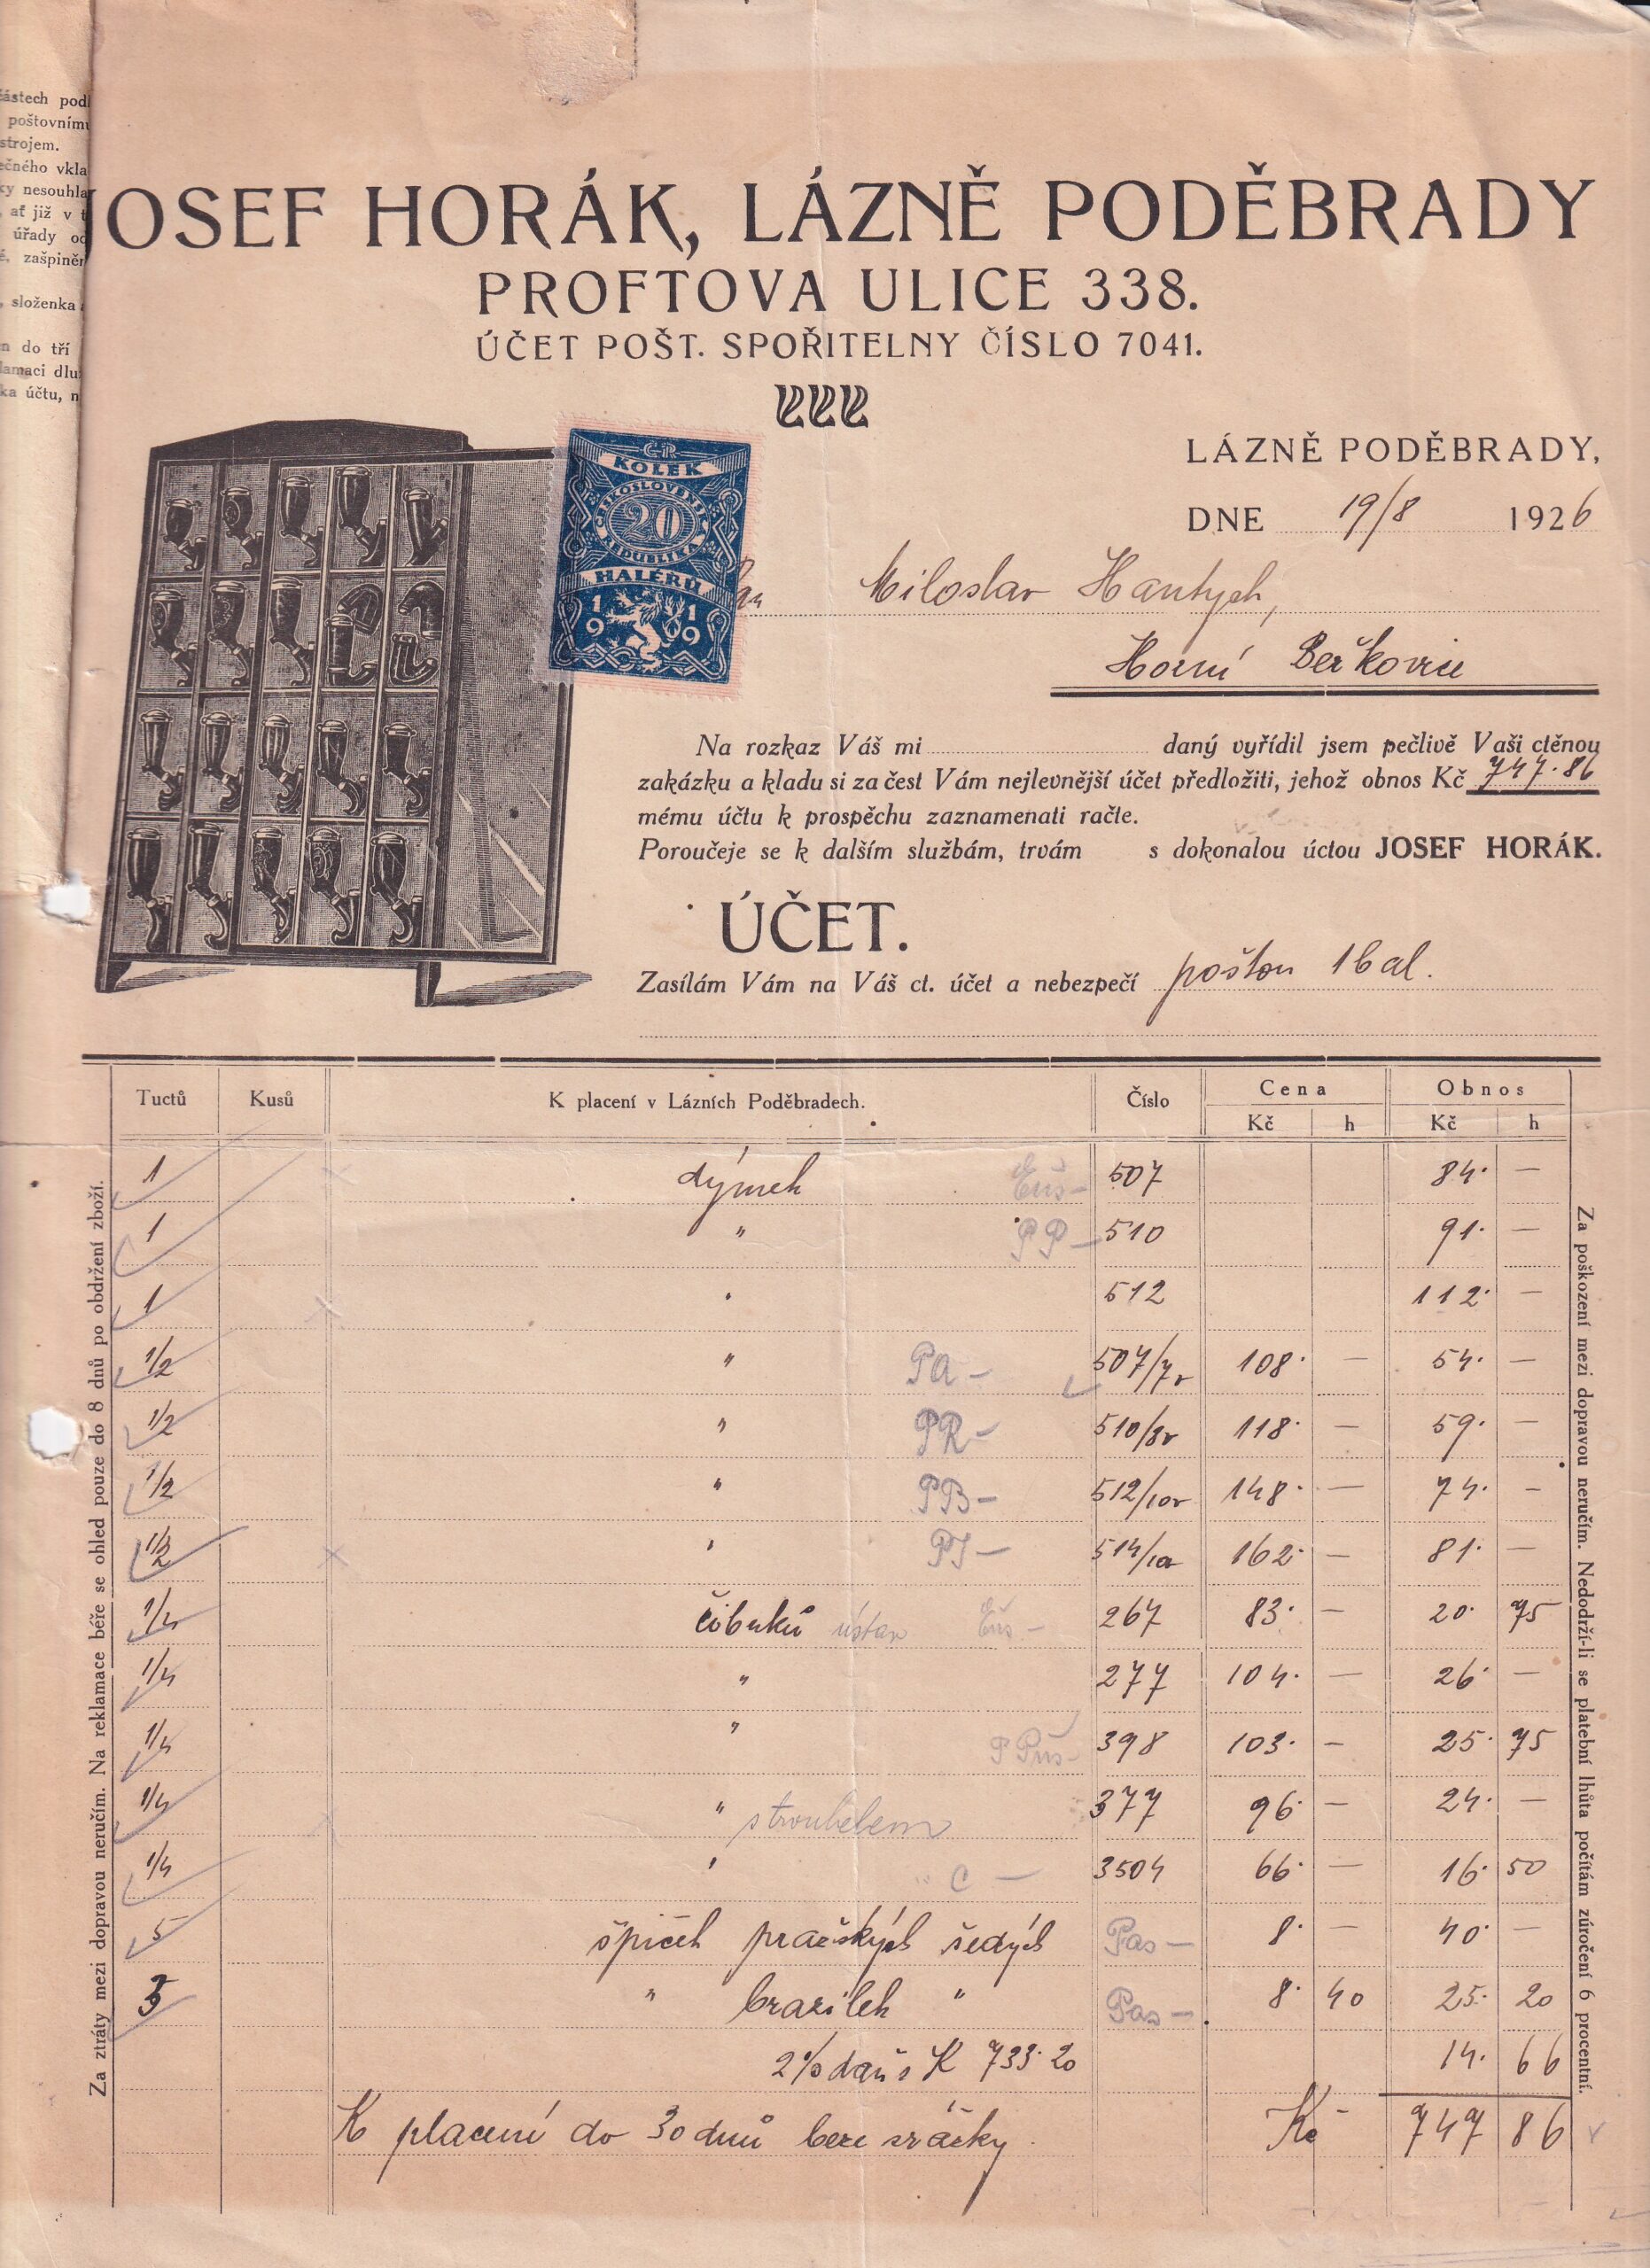 částech pod
poštovním
strojem.
ečného vkla
ky nesouhla
, ať již v t
úřady od
é, zašpiněn
, složenka
n do tří
lamaci dlu
ka účtu, n
JOSEF HORÁK, LÁZNĚ PODĚBRADY
PROFTOVA ULICE 338.
ÚČET POŠT. SPOŘITELNY ČÍSLO 7041.
ČR
KOLEK
ČESKOSLOVENSKÁ
20
REPUBLIKA
HALÉŘŮ
1919
LÁZNĚ PODĚBRADY,
DNE 19/8 1926
Miloslav Hantych,
Horní Beřkovice
Na rozkaz Váš mi daný vyřídil jsem pečlivě Vaši ctěnou
zakázku a kladu si za čest Vám nejlevnější účet předložiti, jehož obnos Kč 747·86
mému účtu k prospěchu zaznamenati račte.
Poroučeje se k dalším službám, trvám s dokonalou úctou JOSEF HORÁK.
ÚČET.
Zasílám Vám na Váš ct. účet a nebezpečí poštou 1 bal.
Tuctů Kusů K placení v Lázních Poděbradech. Číslo Cena Obnos
Kč h Kč h
1 dýmek 507 84·—
1 " PP— 510 91·—
1 " 512 112·—
1/2 " PA— 507/7r 108·— 54·—
1/2 " PR— 510/8r 118·— 59·—
1/2 " PB— 512/10r 148·— 74·—
1/2 " PJ— 514/10r 162·— 81·—
1/4 čibuků 267 83·— 20·75
1/4 " 277 104·— 26·—
1/4 " 398 103·— 25·75
1/4 " s troubelem 377 96·— 24·—
1/4 " " C— 3504 66·— 16·50
5 špiček pražských šedých Pas— 8·— 40·—
3 " brazilek " Pas— 8·40 25·20
2% daň s K 733·20 14·66
K placení do 30 dnů beze srážky. Kč 747 86
Za ztráty mezi dopravou neručím. Na reklamace béře se ohled pouze do 8 dnů po obdržení zboží.
Za poškození mezi dopravou neručím. Nedodrží-li se platební lhůta počítám zúročení 6 procentní.